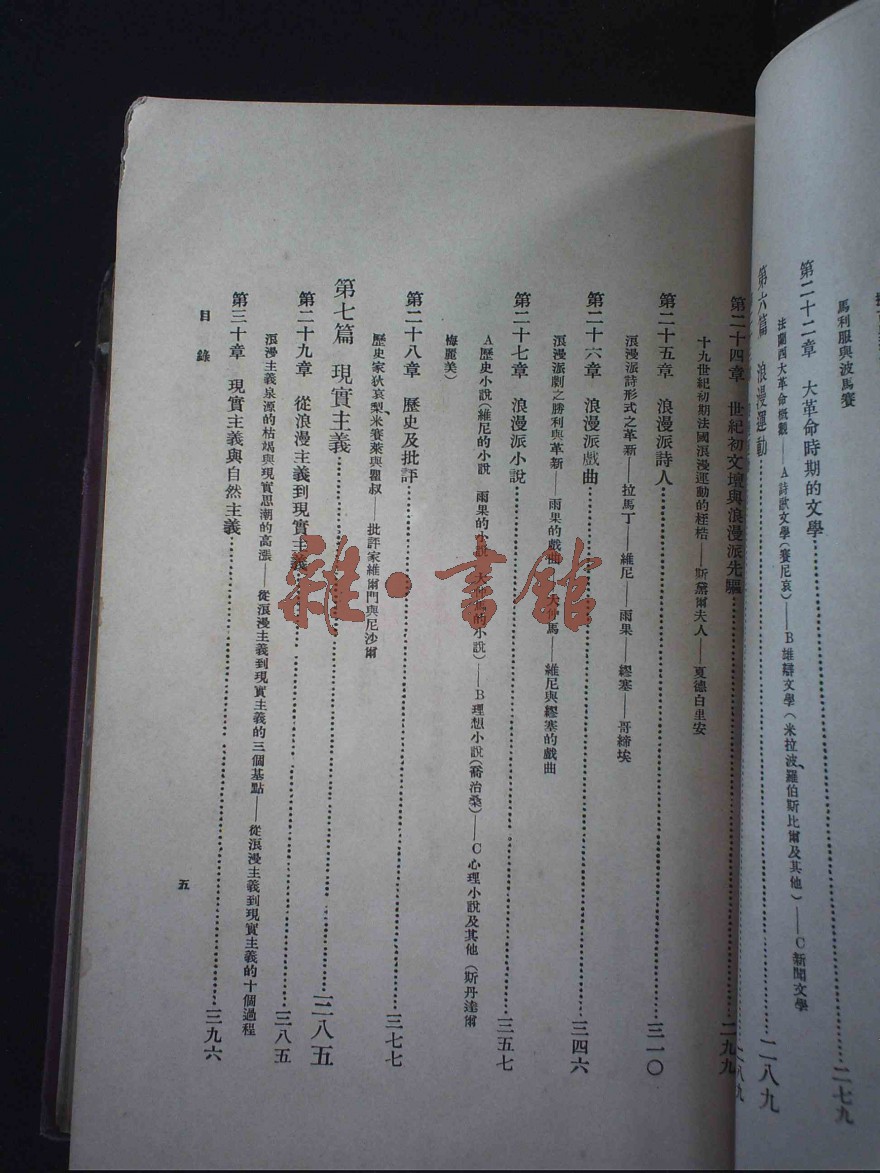 馬利服與波馬賽
第二十二章 大革命時期的文學……二七九
法蘭西大革命概觀——A詩歌文學(賽尼哀)——B雄辯文學(米拉波、羅伯斯比爾及其他)——C新聞文學
第六篇 浪漫運動……二八九
二八九
第二十四章 世紀初文壇與浪漫派先驅……二九九
十九世紀初期法國浪漫運動的桎梏——斯黛爾夫人——夏德白里安
第二十五章 浪漫派詩人……三一〇
浪漫派詩形式之革新——拉馬丁——維尼——雨果——繆塞——哥締埃
第二十六章 浪漫派戲曲……三四六
浪漫派劇之勝利與革新——雨果的戲曲——大仲馬——維尼與繆塞的戲曲
第二十七章 浪漫派小說……三五七
A歷史小說(維尼的小說 雨果的小說 大仲馬的小說)——B理想小說(喬治桑)——C心理小說及其他(斯丹達爾
梅麗美)
第二十八章 歷史及批評……三七七
歷史家狄哀梨、米賽萊與瞿叔——批評家維爾門與尼沙爾
第七篇 現實主義……三八五
第二十九章 從浪漫主義到現實主義……三八五
浪漫主義泉源的枯竭與現實思潮的高漲——從浪漫主義到現實主義的三個基點——從浪漫主義到現實主義的十個過程
第三十章 現實主義與自然主義……三九六
目錄
五
雜·書館